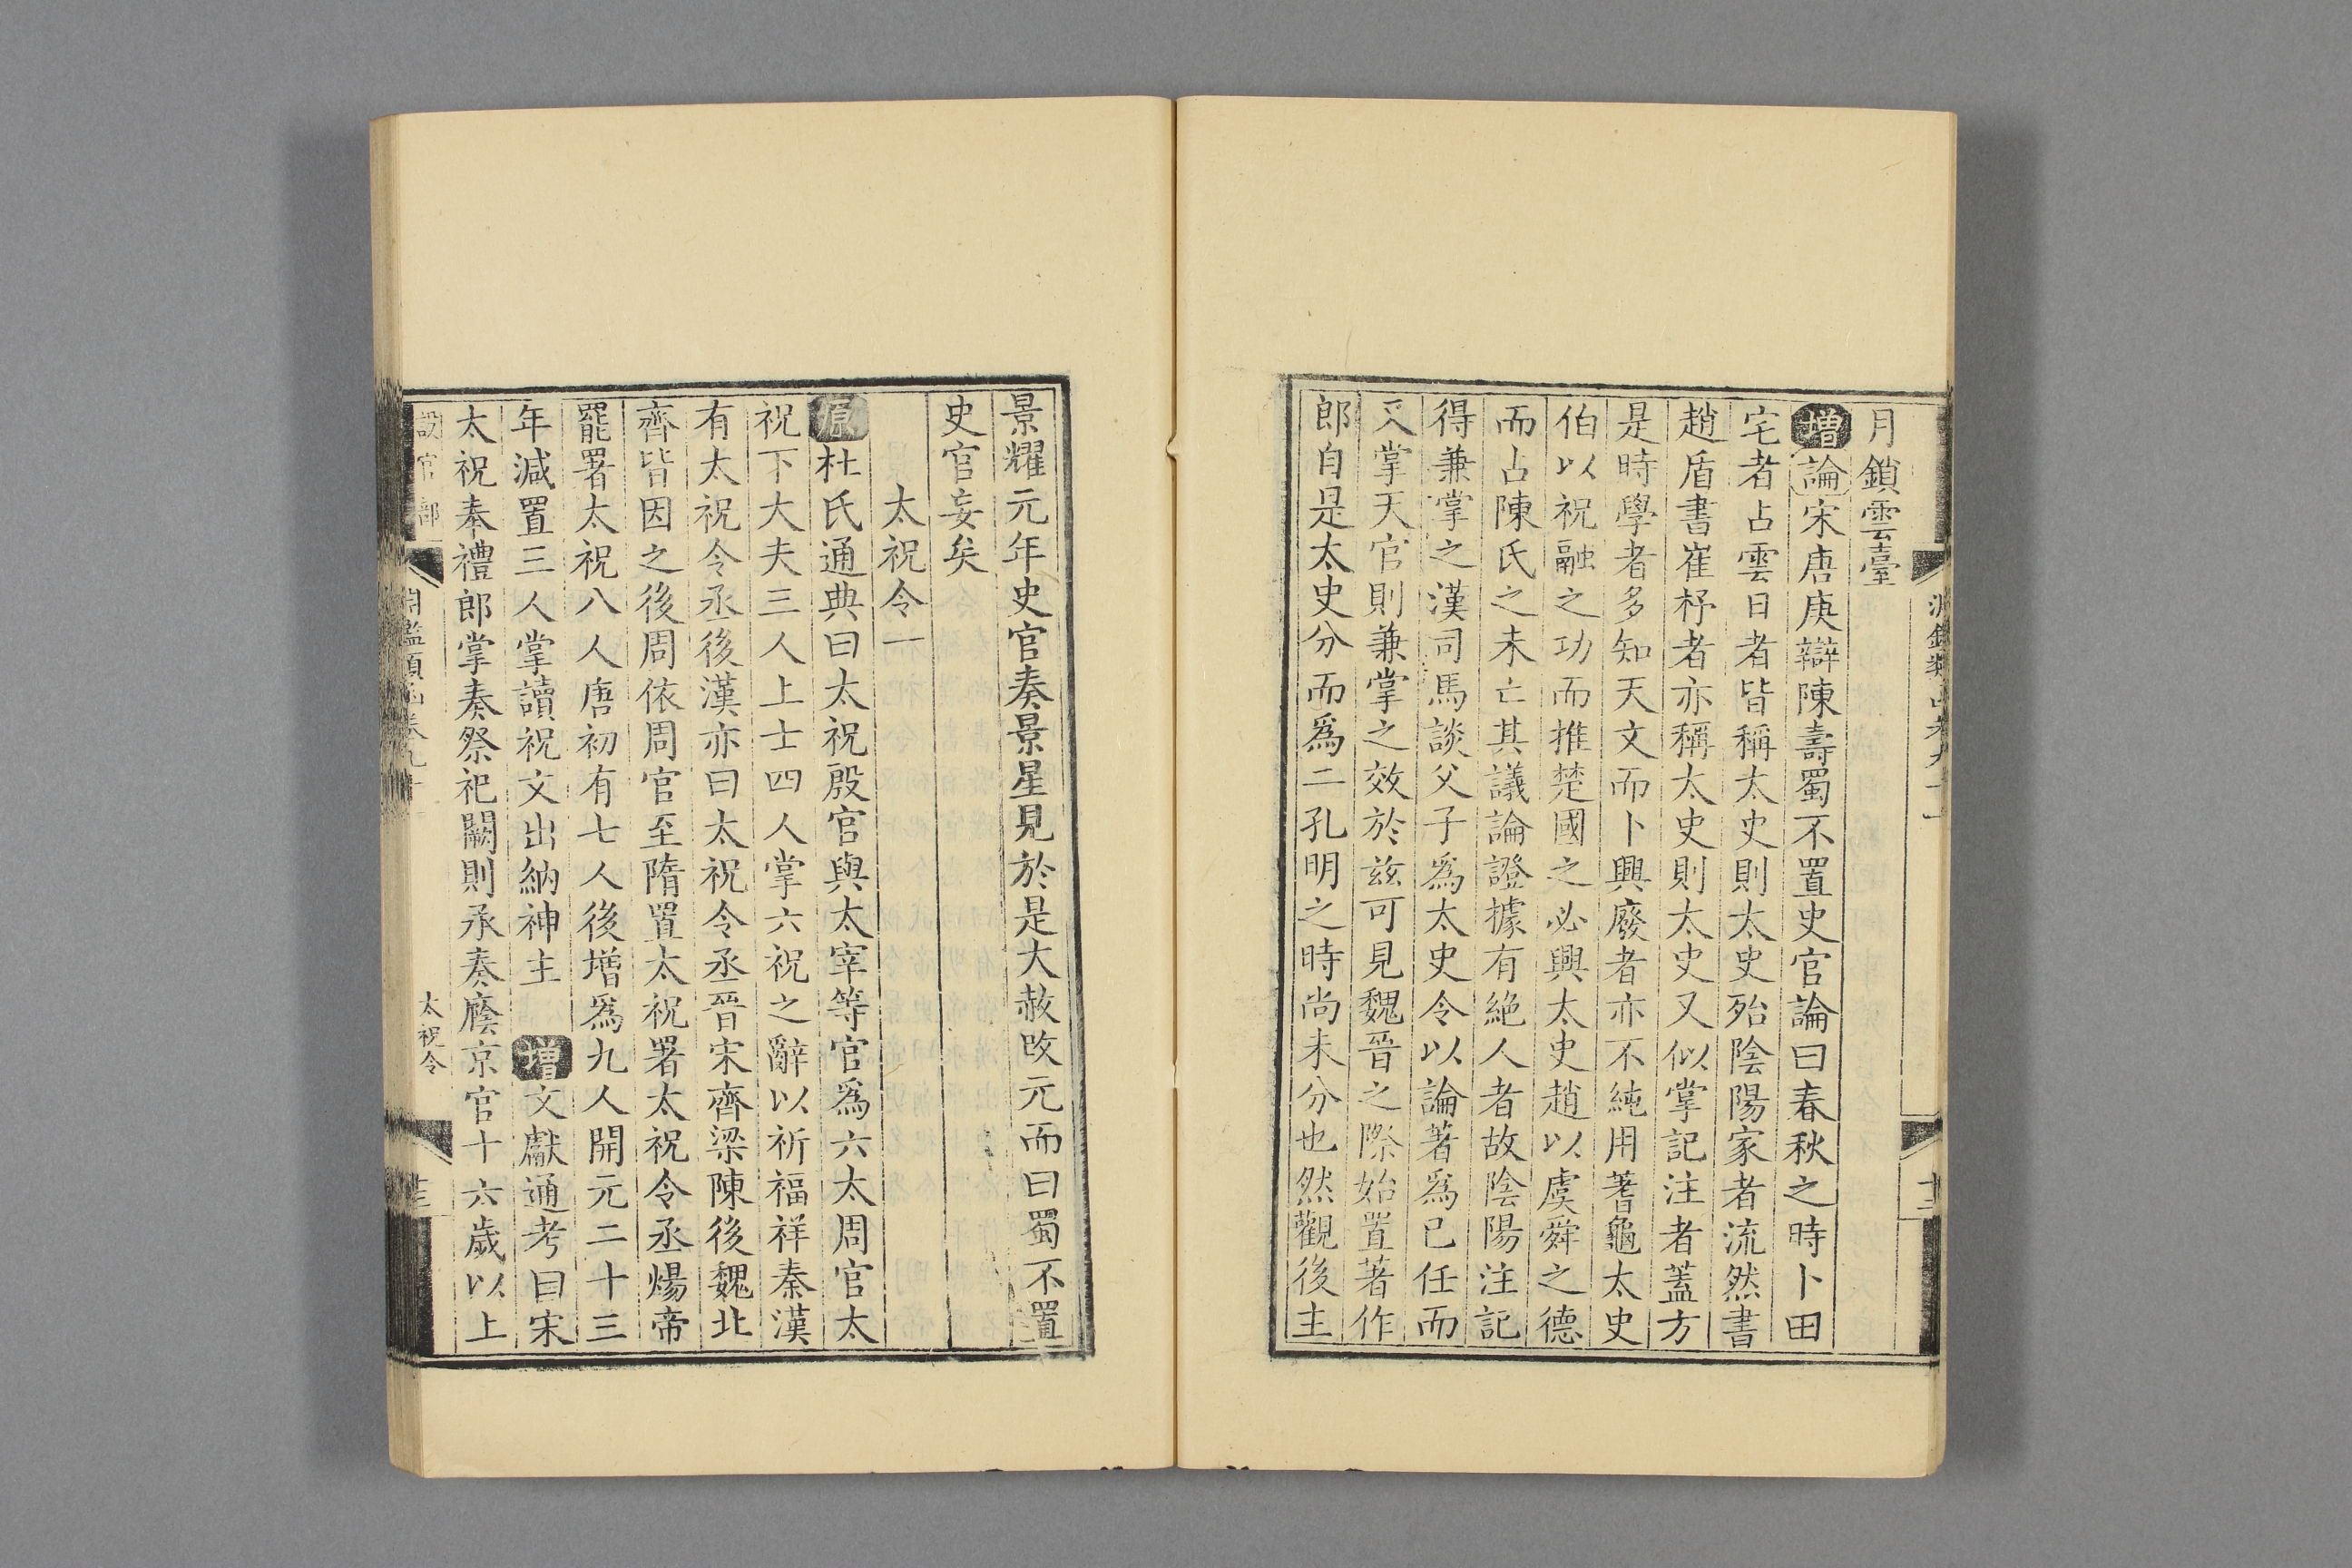 月鎖雲臺
增論宋唐庚辯陳壽蜀不置史官論曰春秋之時卜田
宅者占雲日者皆稱太史則太史殆陰陽家者流然書
趙盾書崔杼者亦稱太史則太史又似掌記注者蓋方
是時學者多知天文而卜興廢者亦不純用蓍龜太史
伯以祝融之功而推楚國之必興太史趙以虞舜之德
而占陳氏之未亡其議論證據有絶人者故陰陽注記
得兼掌之漢司馬談父子爲太史令以論著爲已任而
又掌天官則兼掌之效於兹可見魏晉之際始置著作
郎自是太史分而爲二孔明之時尚未分也然觀後主
景耀元年史官奏景星見於是大赦改元而曰蜀不置
史官妄矣
太祝令一
原杜氏通典曰太祝殷官與太宰等官爲六太周官太
祝下大夫三人上士四人掌六祝之辭以祈福祥秦漢
有太祝令丞後漢亦曰太祝令丞晉宋齊梁陳後魏北
齊皆因之後周依周官至隋置太祝署太祝令丞煬帝
罷署太祝八人唐初有七人後增爲九人開元二十三
年減置三人掌讀祝文出納神主 增文獻通考曰宋
太祝奉禮郎掌奏祭祀闕則承奏廕京官十六歲以上
設官部
太祝令